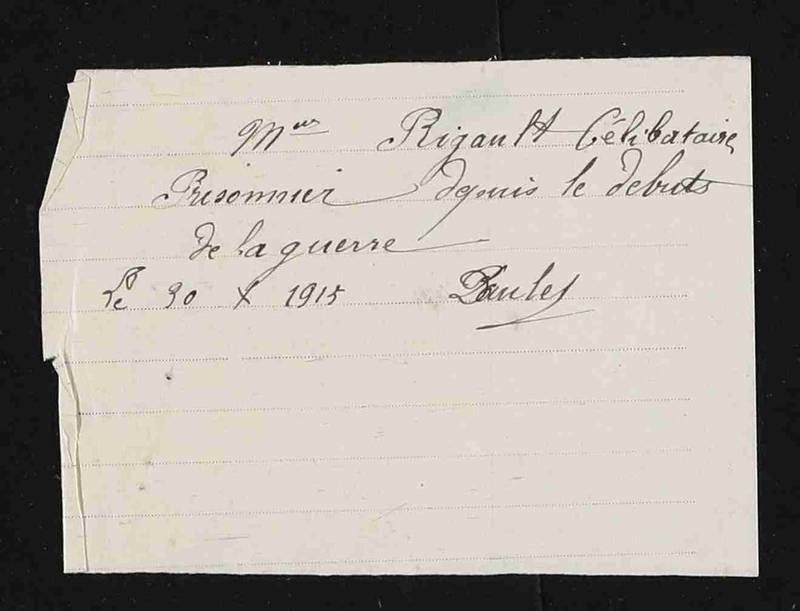 Meur Rigault Célibataire
Prisonnier depuis le debuts
de la guerre
Le 30 X 1915